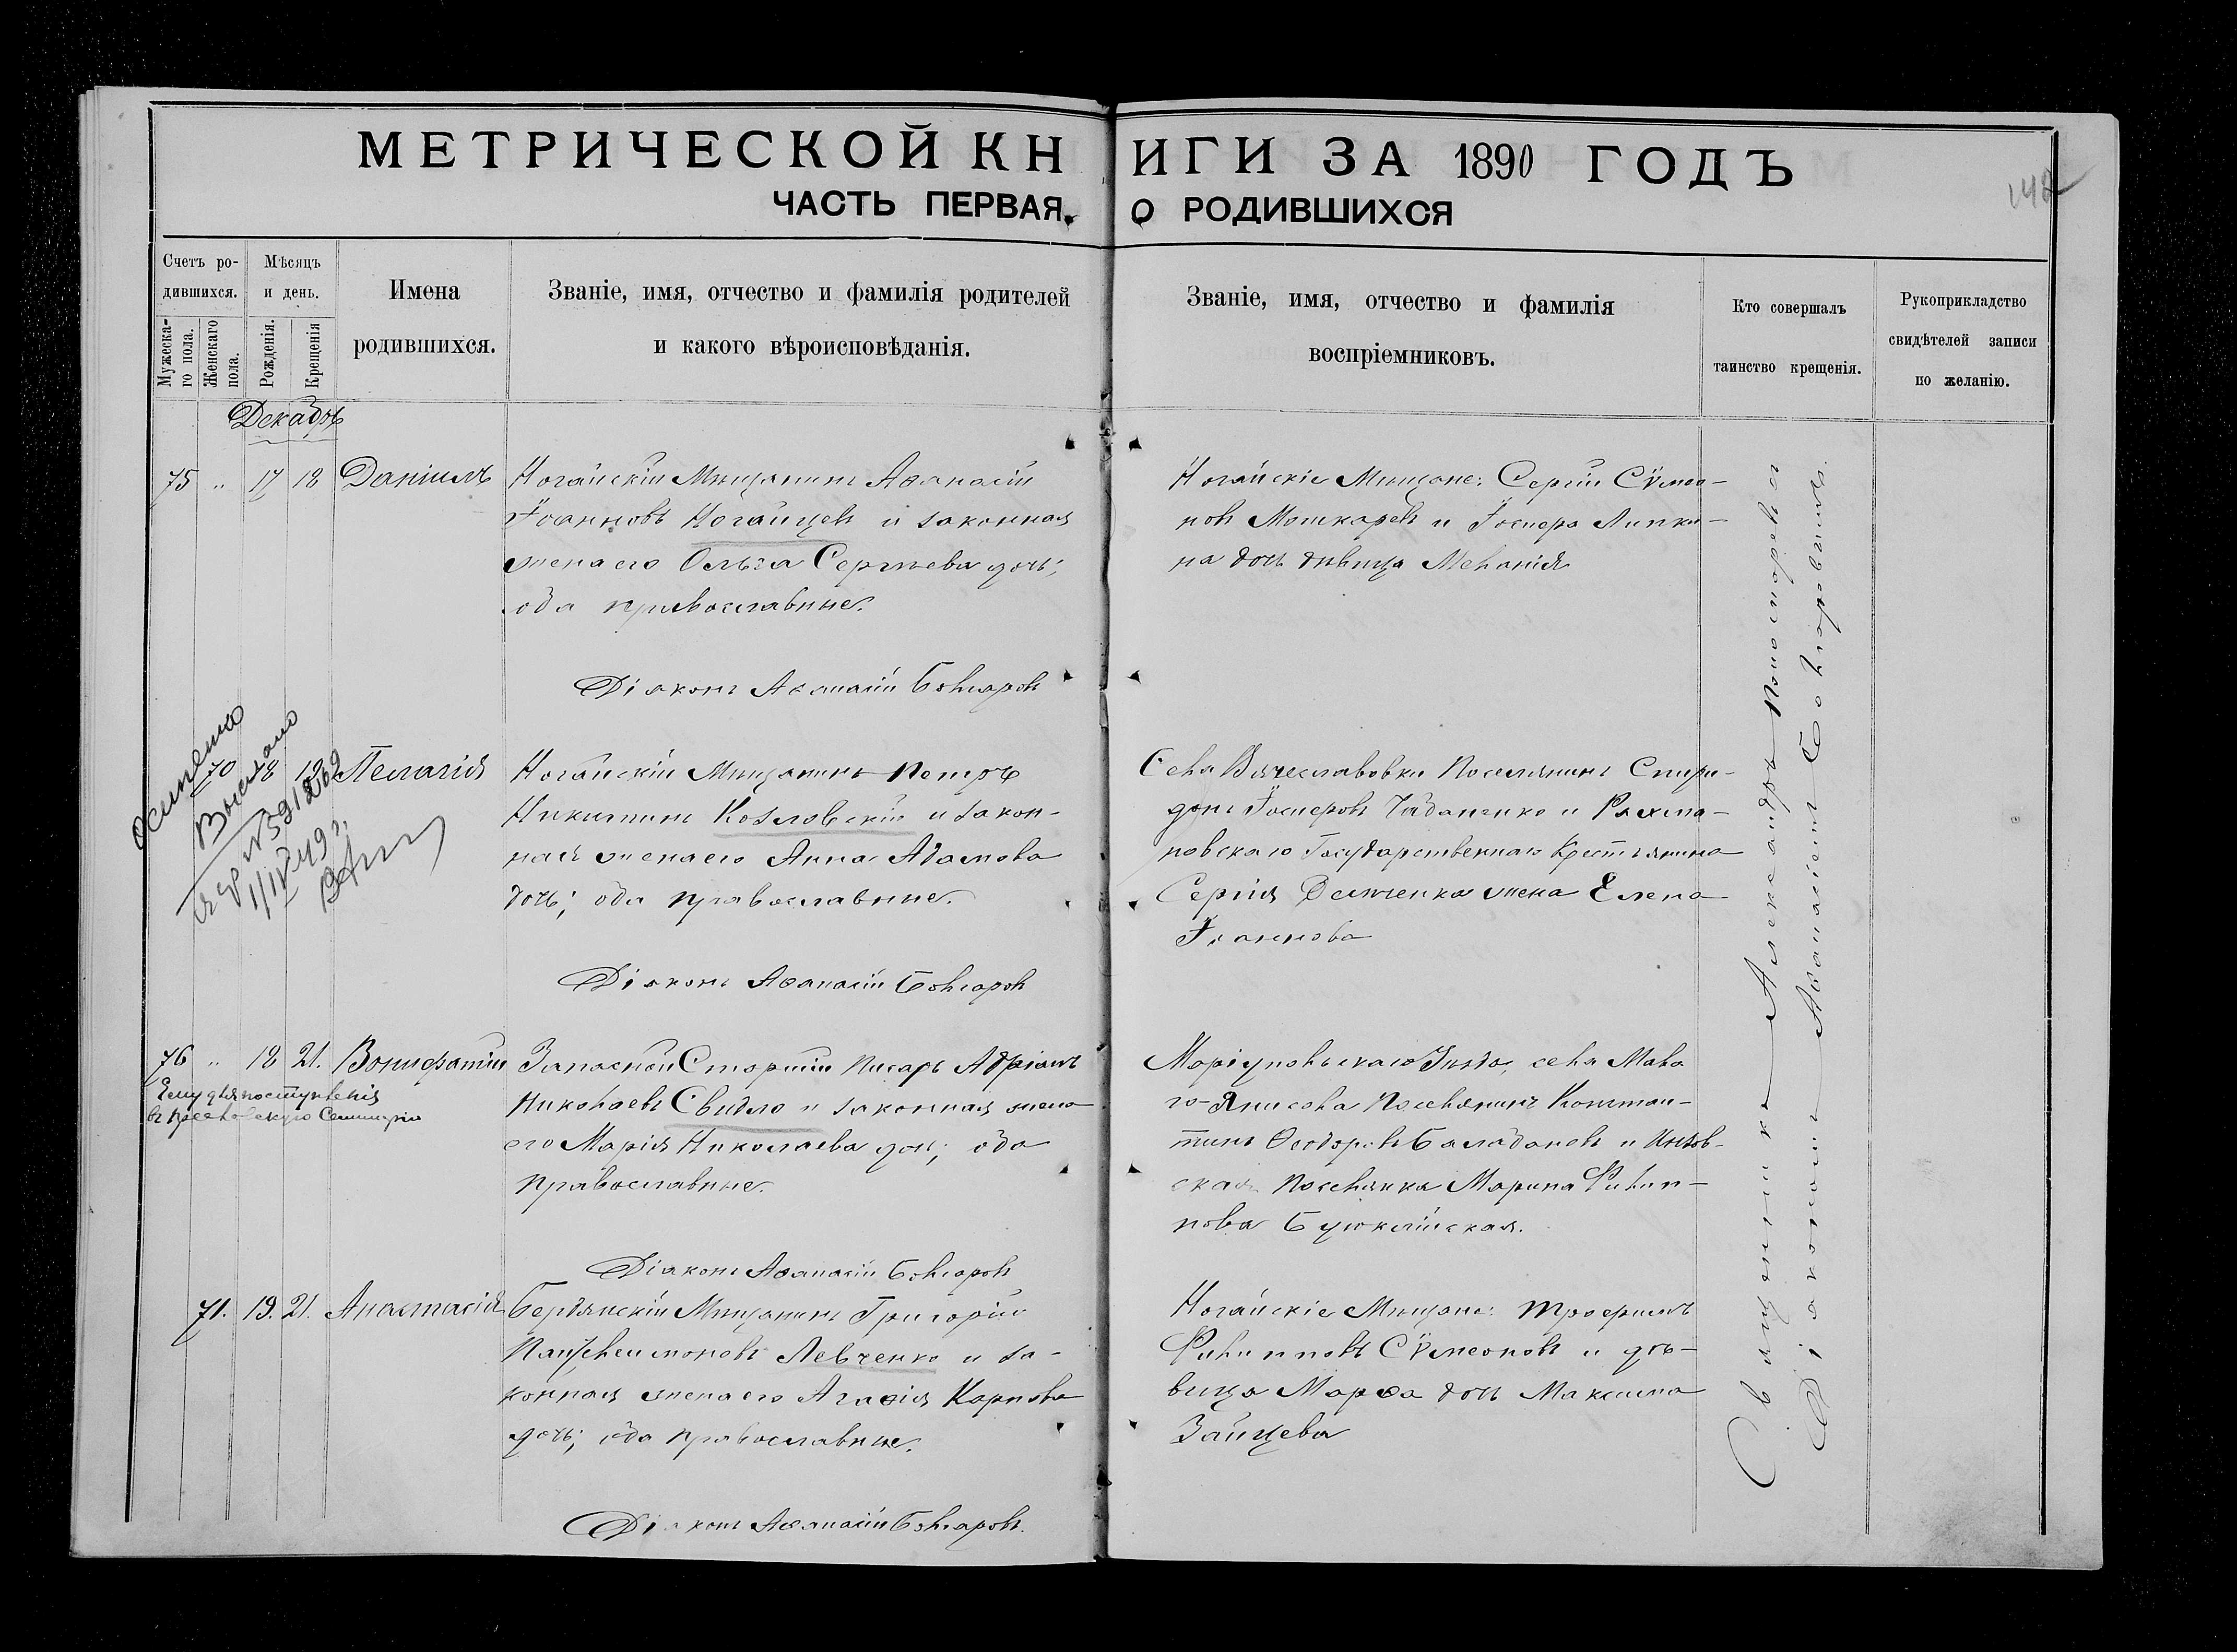 МЕТРИЧЕСКОЙ КНИГИ ЗА 1890 ГОДЪ
ЧАСТЬ ПЕРВАЯ, О РОДИВШИХСЯ
142
Счетъ ро-
дившихся.
Мужеска-
го пола.
Женскаго
пола.
Мѣсяцъ
и день.
Рожденія.
Крещенія
Имена
родившихся.
Званіе, имя, отчество и фамилія родителей
и какого вѣроисповѣданія.
Званіе, имя, отчество и фамилія
воспріемниковъ.
Кто совершалъ
таинство крещенія.
Рукоприкладство
свидѣтелей записи
по желанію.
Декабрь
75 " 17 18 Даніилъ
Ногайскій Мищанинъ Аѳанасій
Іоанновъ Ногайцевъ и законная
жена его Ольга Сергѣева дочь;
оба православные.
Діаконъ Аѳанасій Бочаровъ
Ногайскіе Мищане: Сергій Сѵмео-
новъ Мошкаревъ и Іосифа Липки-
на дочь дѣвица Меланія
70 18 18 Пелагія
Ногайскій Мищанинъ Петръ
Никитинъ Козловскій и закон-
ная жена его Анна Адамова
дочь; оба православные.
Діаконъ Аѳанасій Бочаровъ
Выслано
1/IV 49 г.
Села Вячеславовки Поселянинъ Спири-
донъ Іосифовъ Чабаненко и
новскаго Государственнаго Крестьянина
Сергія жена Елена
Іоаннова
76 " 18 21. Вонифатій
Ему для поступленія
въ Семинарію
Запасный Старшій Писарь Адріанъ
Николаевъ Свидло и законная жена
его Марія Николаева дочь; оба
православные.
Діаконъ Аѳанасій Бочаровъ
Маріупольскаго Уѣзда, села Мало
го-Янисоля Поселянинъ Констан-
тинъ Ѳеодоровъ Балабановъ и
ская Поселянка Марина Филип-
пова
71. 19. 21. Анастасія
Бердянскій Мищанинъ Григорій
Пантелеимоновъ Левченко и за-
конная жена его Агаѳія Карпова
дочь; оба православные.
Діаконъ Аѳанасій Бочаровъ.
Ногайскіе Мищане: Трофимъ
Филипповъ Сѵмеоновъ и дѣ-
вица Марѳа дочь Максима
Зайцева
Священникъ Александръ
Діаконъ Аѳанасій Бочаровъ